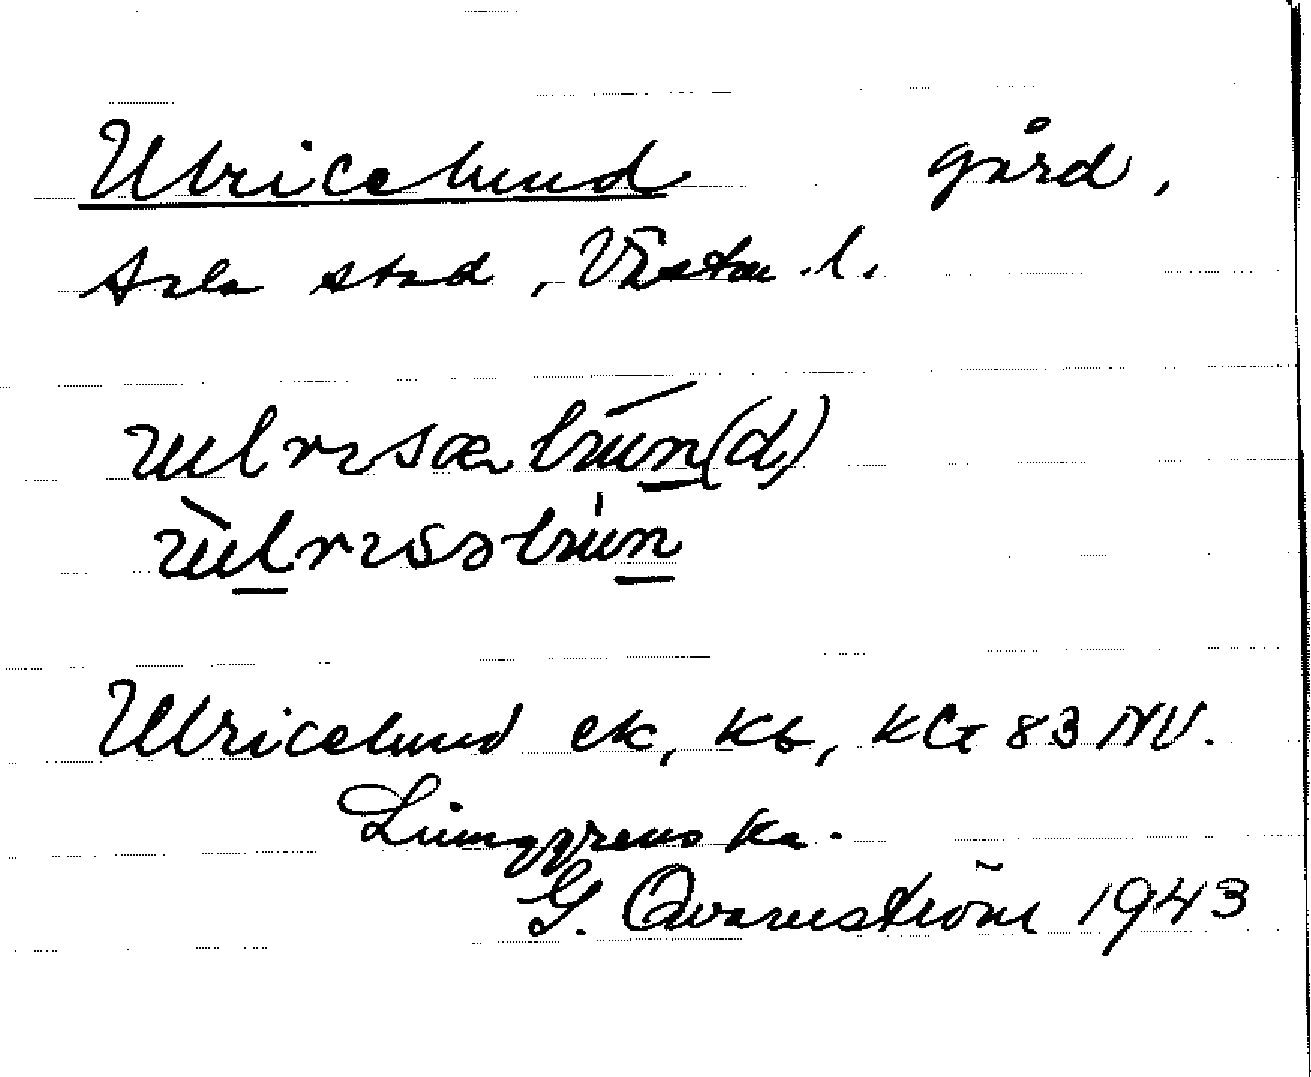 Ulricelund gård,
Sala stad, Västm. l.
ulrisælun(d)
ulrisəlun
Ulricelund ek, Kb, KG 83 NV.
Ljunggrens ka.
G. Qvarnström 1943